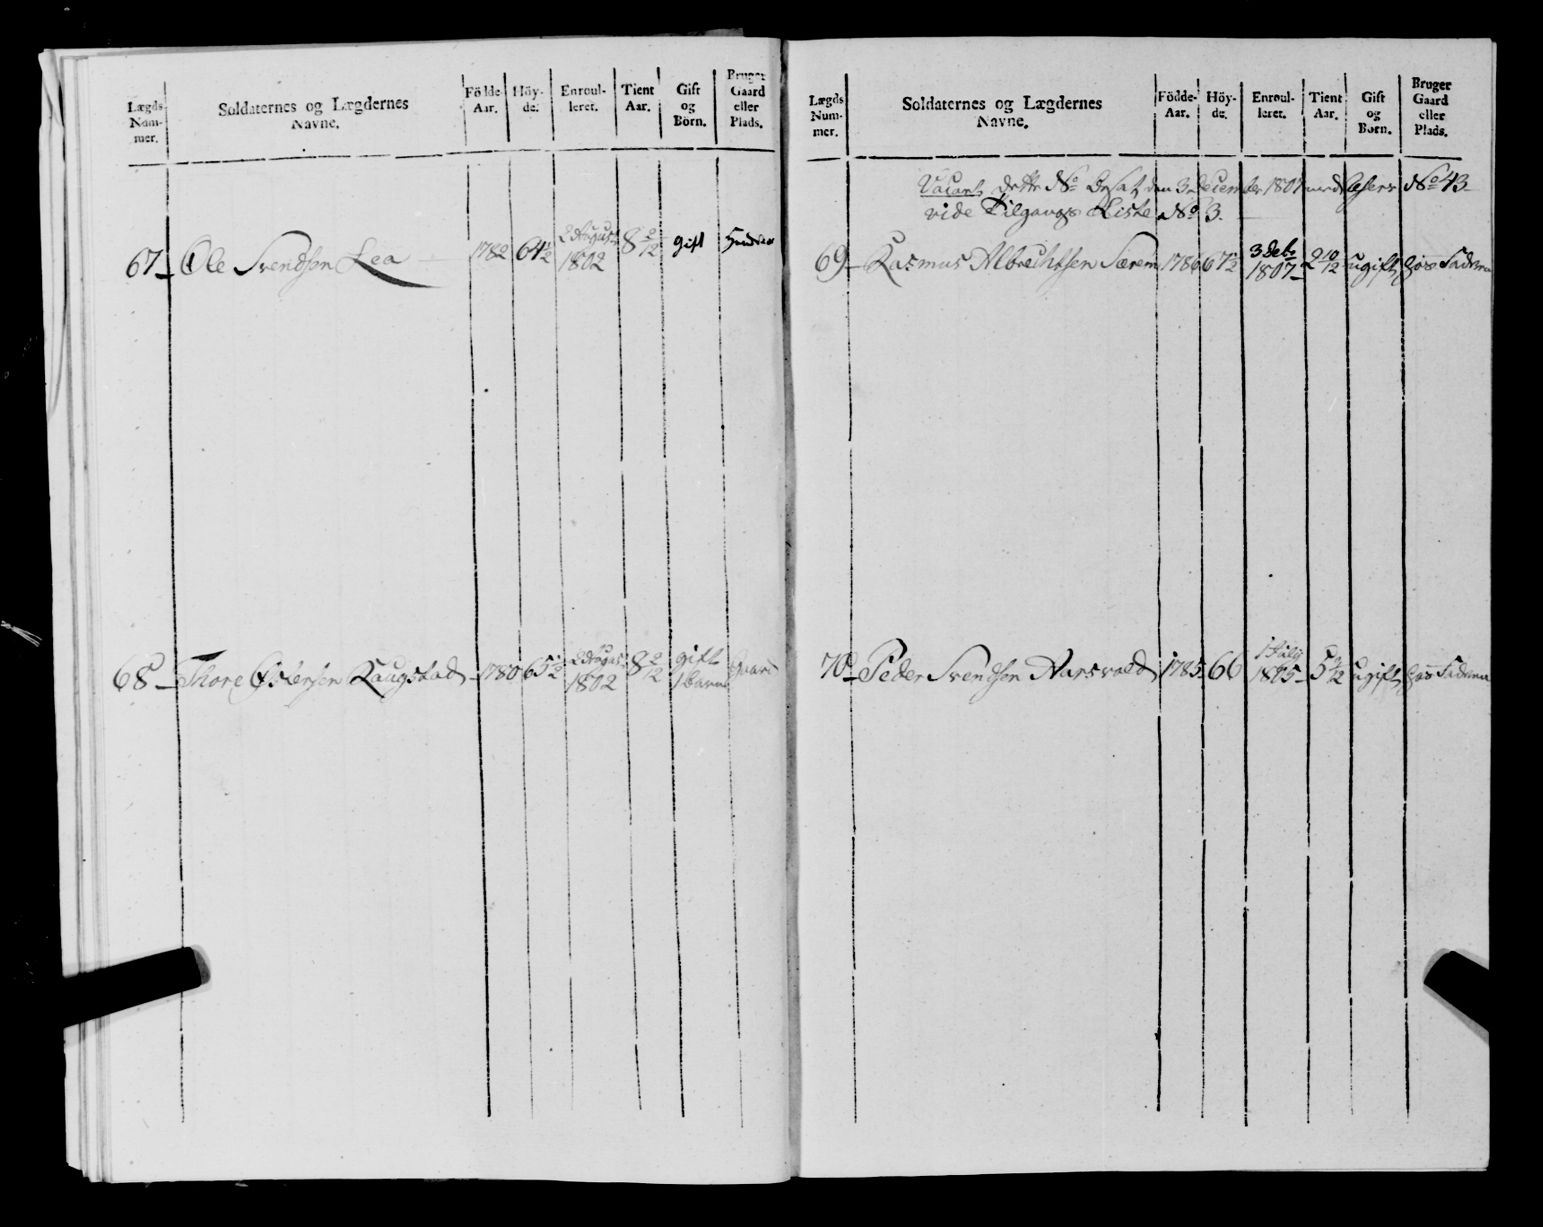 Lægds Num- mer. Soldaternes og Lægdernes Navne. Födde- Aar. Höy- de. Enroul- leret. Tient Aar. Gift og Börn. Bruger Gaard eller Plads.
67 Ole Svendsen Lea 1782 64½ 2 August 1802 8 0/12 gift
68 Thore Kaugstad 1780 65½ 2 August 1802 8 0/12 gift 1 barn Gaard
Lægds Num- mer. Soldaternes og Lægdernes Navne. Födde- Aar. Höy- de. Enroul- leret. Tient Aar. Gift og Börn. Bruger Gaard eller Plads.
Vacant, dette No besat den 3 December 1807 med No 43
vide Tilgangs Liste No 3.
69 Rasmus Albrechtsen Særem 1786 67½ 3 debr 1807 2 10/12 ugift hos Faderen
70 Peder Svendsen 1785 66 1 July 1805 5 1/12 ugift hos Faderen